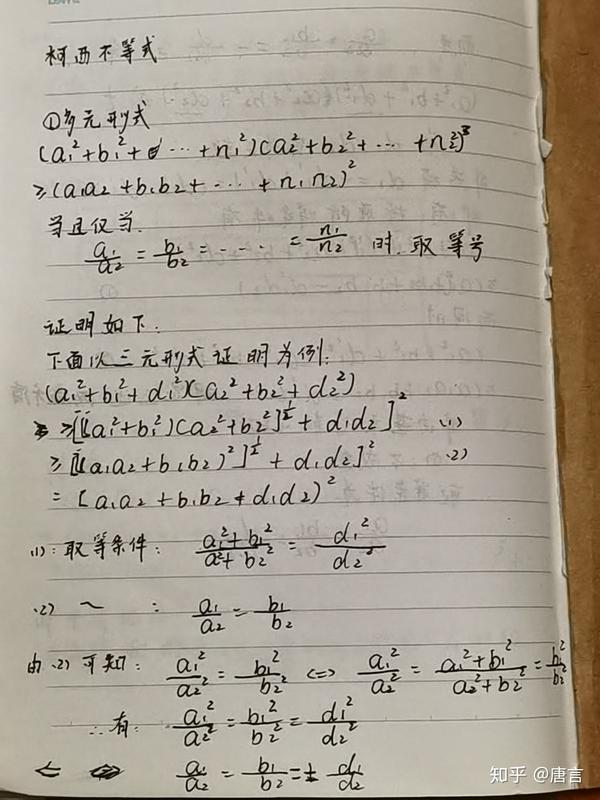 柯西不等式
①多元形式
(a₁²+b₁²+ ··· +n₁²)(a₂²+b₂²+ ··· +n₂²)
≥(a₁a₂+b₁b₂+ ··· +n₁n₂)²
当且仅当
a₁/a₂ = b₁/b₂ = ···· = n₁/n₂ 时,取等号
证明如下:
下面以三元形式证明为例:
(a₁²+b₁²+d₁²)(a₂²+b₂²+d₂²)
≥[[(a₁²+b₁²)(a₂²+b₂²]^½ + d₁d₂]² (1)
≥[[(a₁a₂+b₁b₂)²]^½ + d₁d₂]² (2)
= [a₁a₂+b₁b₂+d₁d₂)²
(1):取等条件: a₁²+b₁²/a²+b₂² = d₁²/d₂²
(2) ~ : a₁/a₂ = b₁/b₂
由(2)可知: a₁²/a₂² = b₁²/b₂² <=> a₁²/a₂² = a₁²+b₁²/a₂²+b₂² = b₁²/b₂²
∴有: a₁²/a₂² = b₁²/b₂² = d₁²/d₂²
a₁/a₂ = b₁/b₂ = ± d₁/d₂
知乎 @唐言